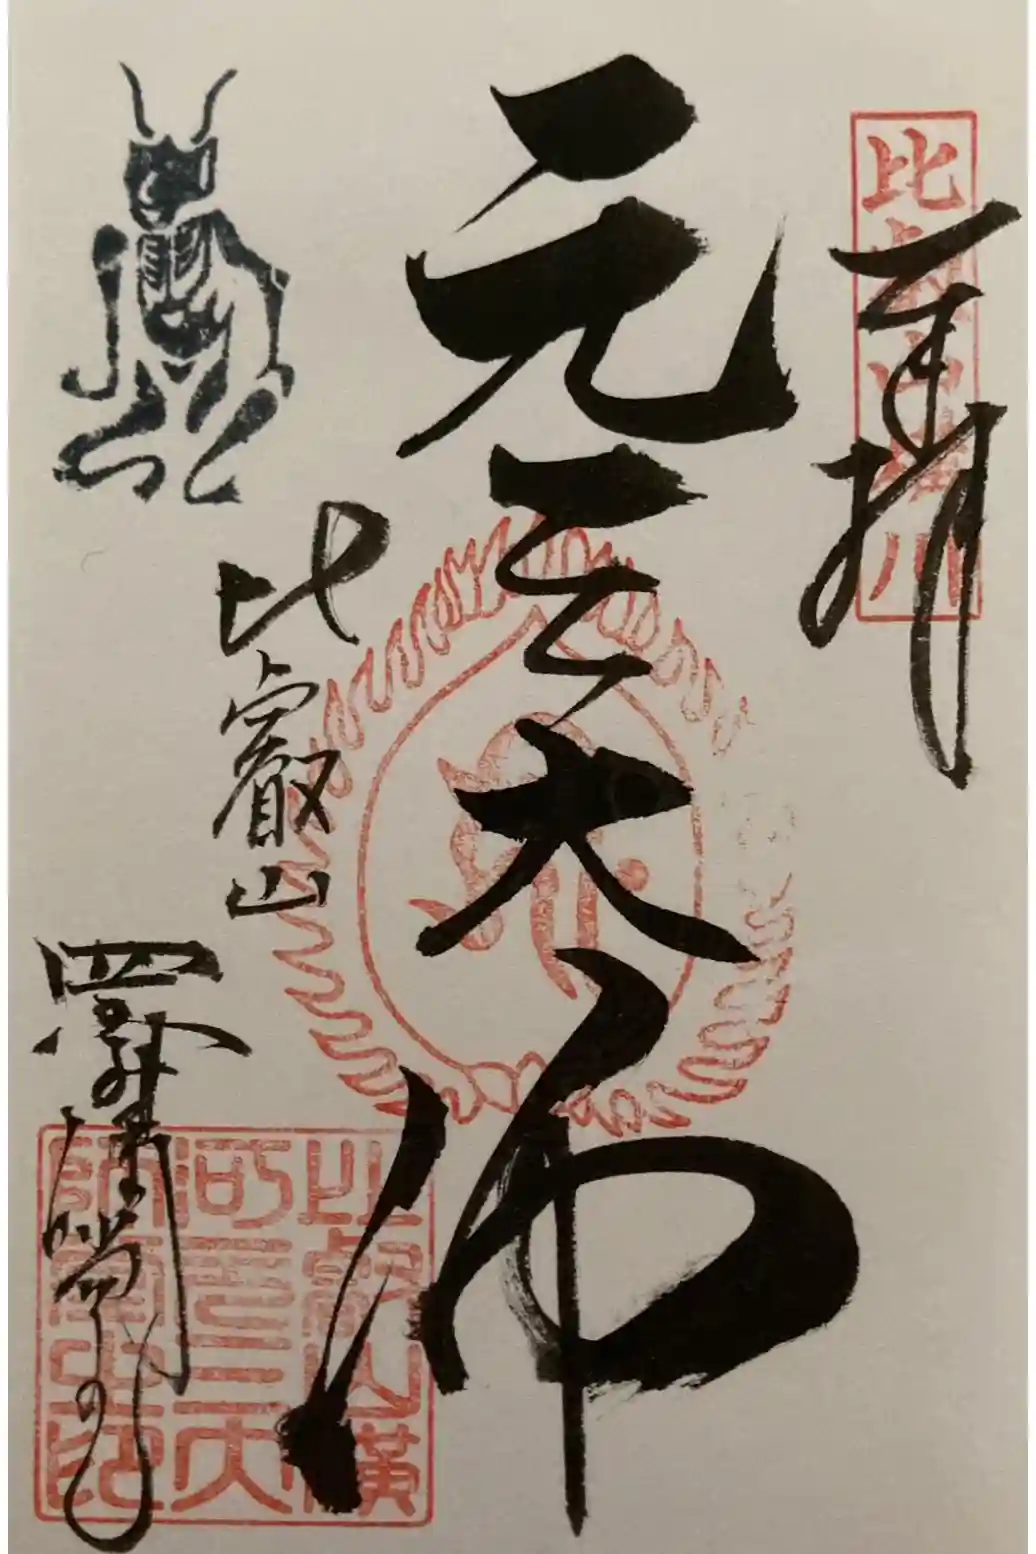 奉拝
比叡山横川
元三大師
比叡山
比叡山横
川元三大
師堂之印